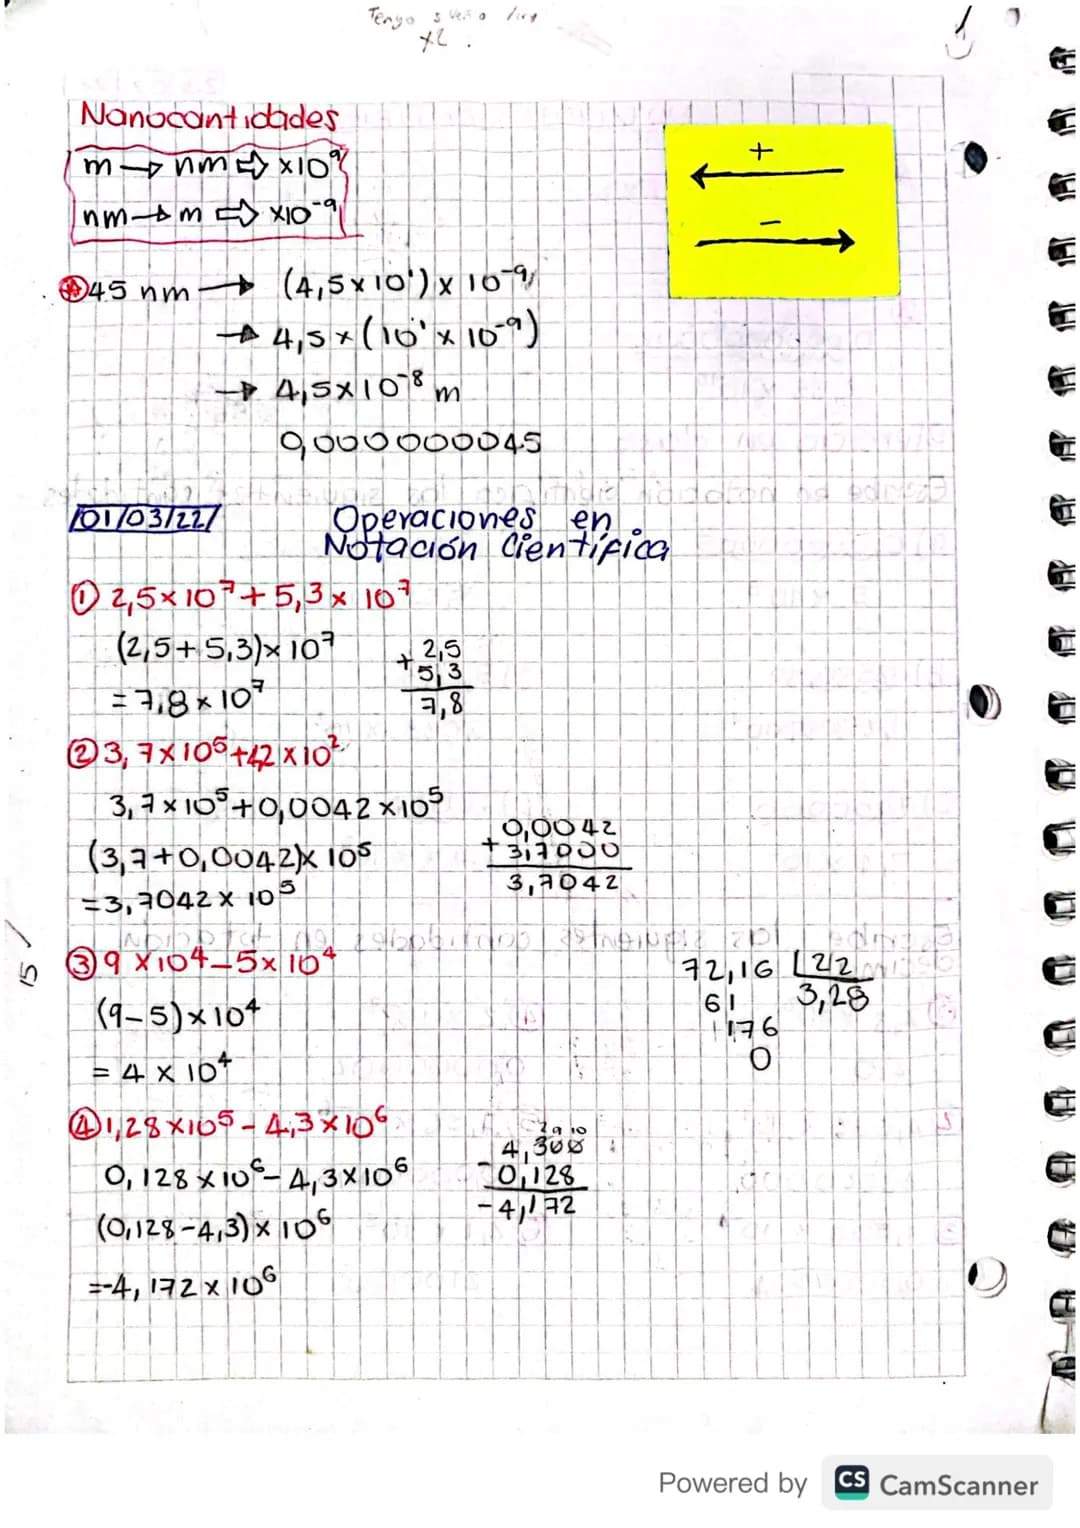 Tengo sueño
x2.
Nanocantidades
m → nm ⇨ x10⁹
nm → m ⇨ x10⁻⁹
+
←
−
→
45 nm → (4,5 x 10¹) x 10⁻⁹
→ 4,5 x (10¹ x 10⁻⁹)
→ 4,5x10⁻⁸ m
0,000000045
01/03/22
Operaciones en
Notación Científica
① 2,5x10⁷ + 5,3 x 10⁷
(2,5 + 5,3) x 10⁷
= 7,8 x 10⁷
2,5
+ 5,3
7,8
② 3,7x10⁵ + 42 x 10²
3,7 x 10⁵ + 0,0042 x 10⁵
(3,7 + 0,0042) x 10⁵
= 3,7042 x 10⁵
0,0042
+ 3,7000
3,7042
③ 9 x 10⁴ − 5 x 10⁴
(9 − 5) x 10⁴
= 4 x 10⁴
72,16 22
61 3,28
176
0
15
④ 1,28 x 10⁵ − 4,3 x 10⁶
0,128 x 10⁶ − 4,3 x 10⁶
(0,128 − 4,3) x 10⁶
= -4,172 x 10⁶
2 9 10
4,300
− 0,128
− 4,172
Powered by CS CamScanner